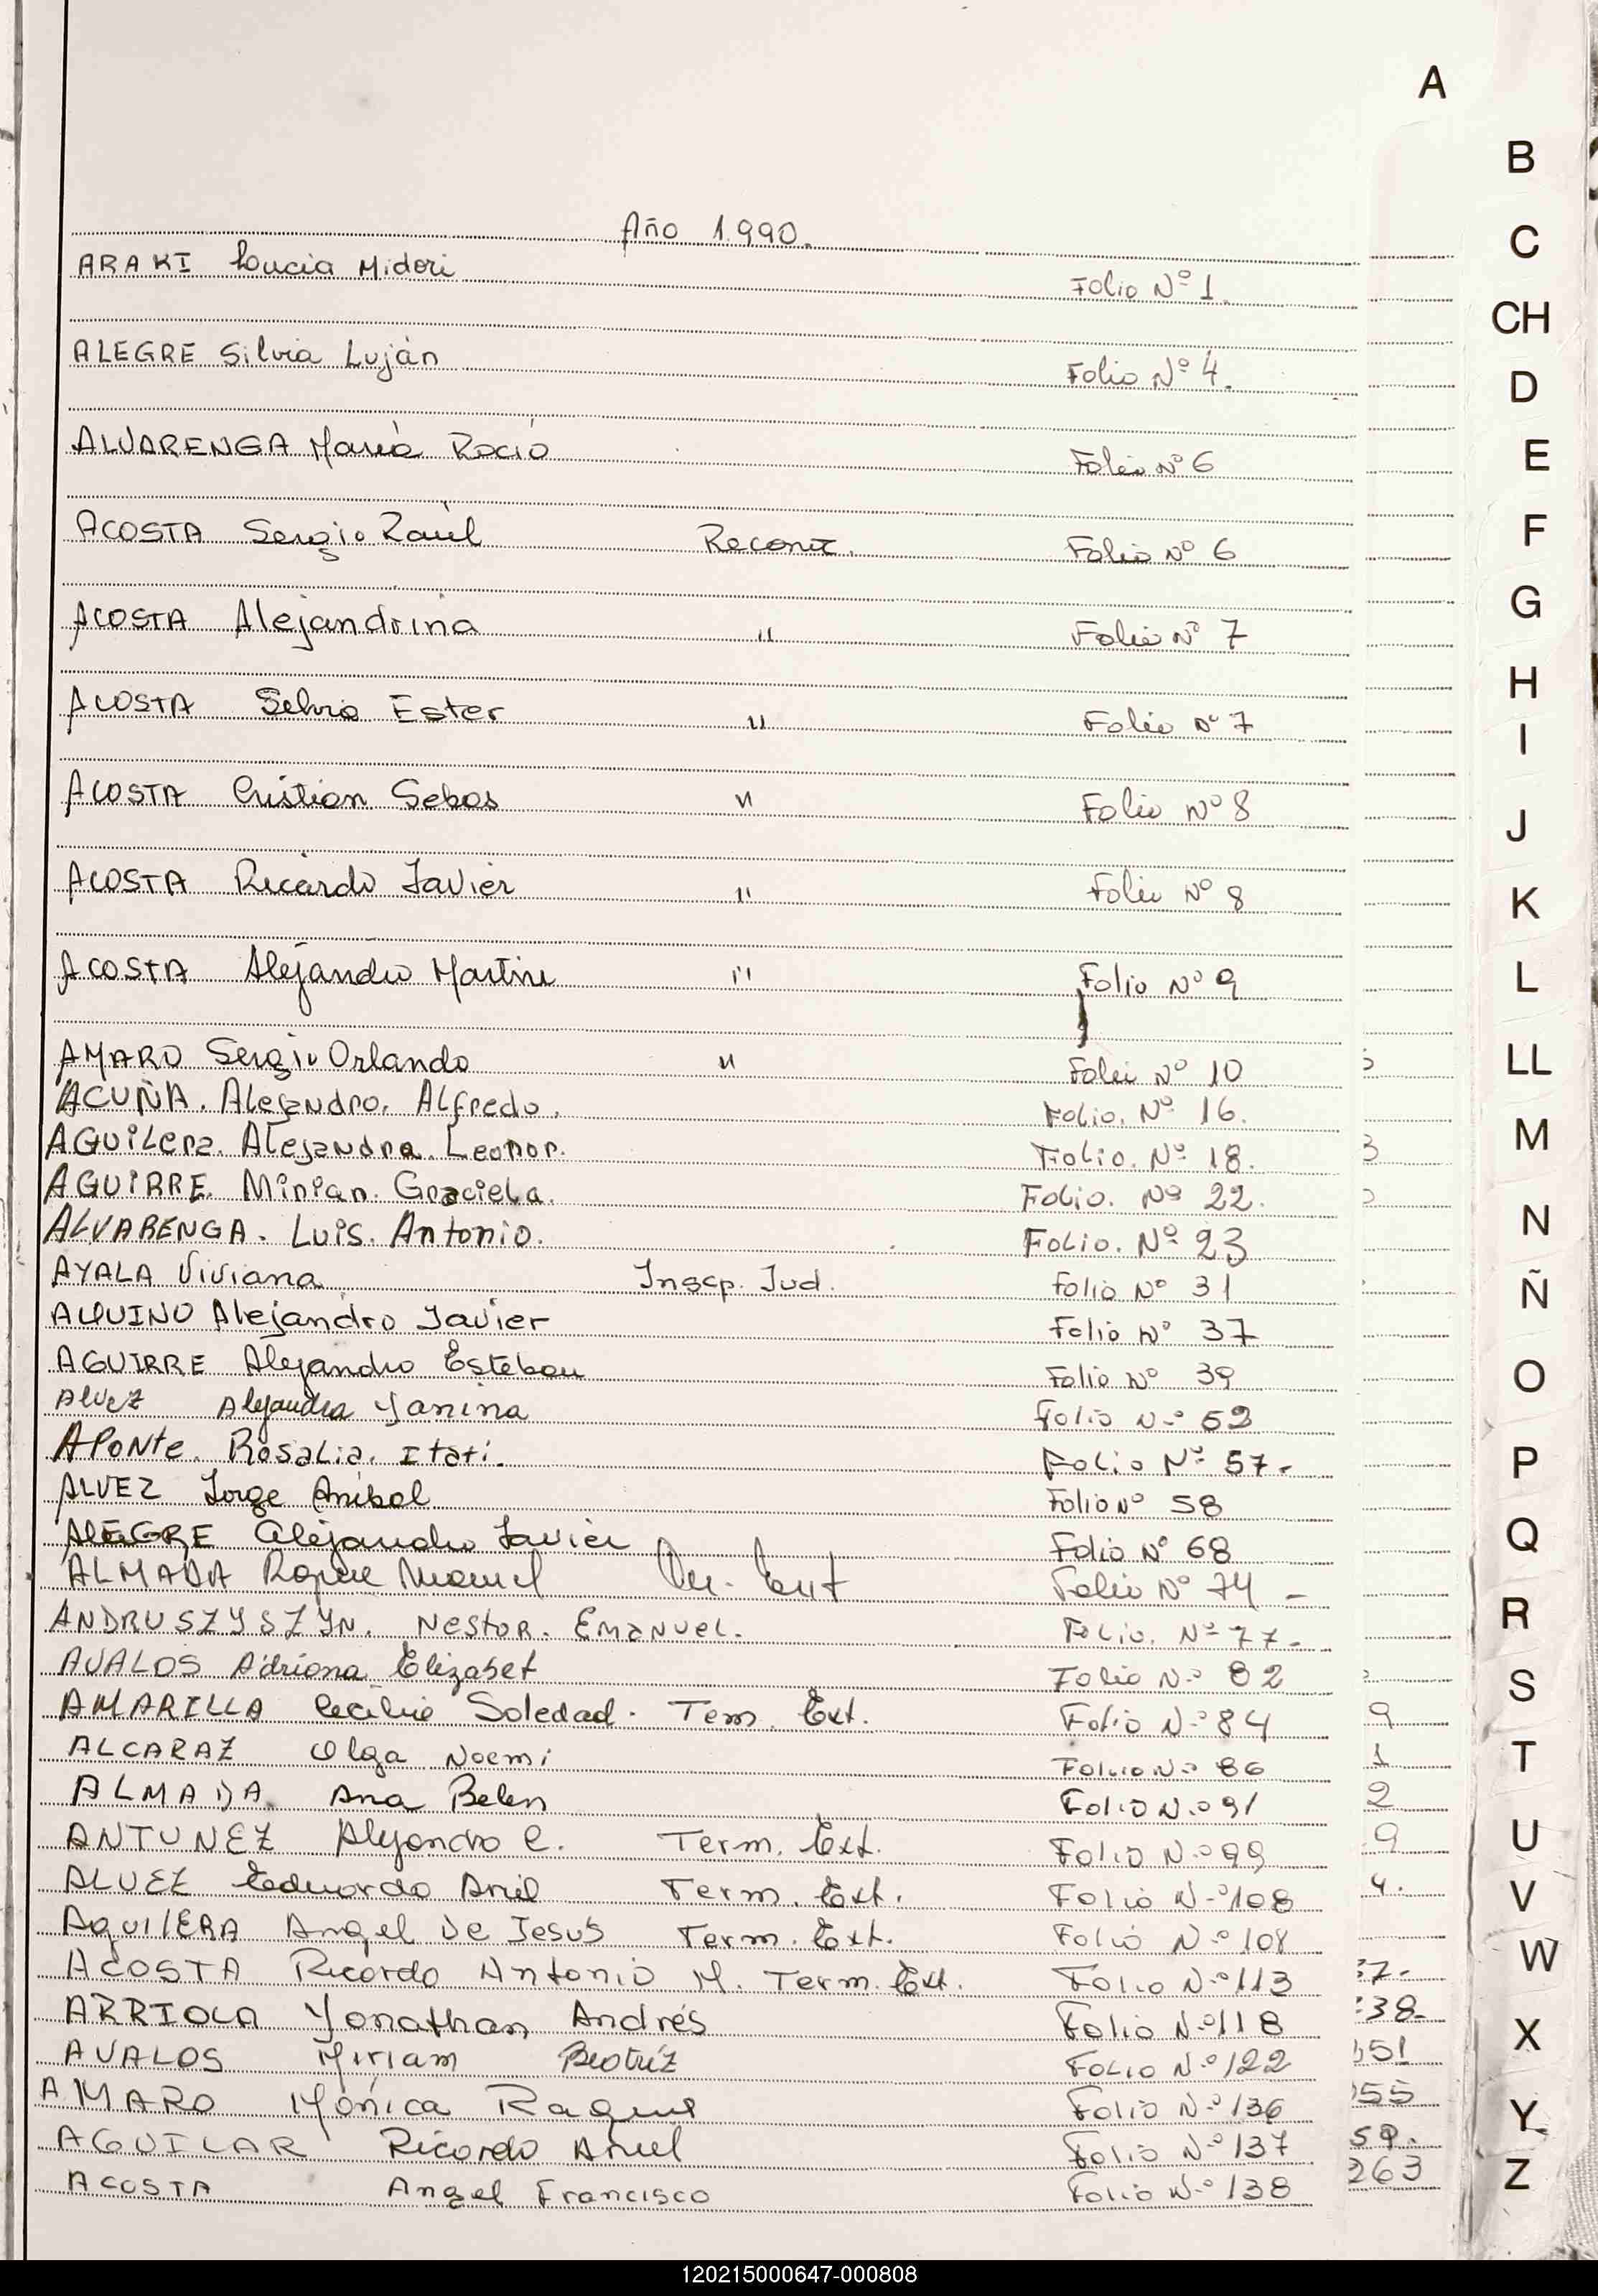 A
B
C
CH
D
E
F
G
H
I
J
K
L
LL
M
N
Ñ
O
P
Q
R
S
T
U
V
W
X
Y
Z
Año 1.990.
ARAKI Lucia Midori Folio Nº 1.
ALEGRE Silvia Luján Folio Nº 4.
ALVARENGA María Roció Folio Nº 6
ACOSTA Sergio Raúl Reconz. Folio Nº 6
ACOSTA Alejandrina " Folio Nº 7
ACOSTA Selvia Ester " Folio Nº 7
ACOSTA Cristian Sebas " Folio Nº 8
ACOSTA Ricardo Javier " Folio Nº 8
ACOSTA Alejandro Martin " Folio Nº 9
AMARO Sergio Orlando " Folio Nº 10
ACUÑA. Alejandro. Alfredo. Folio. Nº 16.
AGUILERA. Alejandra. Leonor. Folio. Nº 18. 3
AGUIRRE. Mirian. Graciela. Folio. Nº 22.
ALVARENGA. Luis. Antonio. Folio. Nº 23
AYALA Viviana Inscp. Jud. Folio Nº 31
AQUINO Alejandro Javier Folio Nº 37
AGUIRRE Alejandro Esteban Folio Nº 39
ALVEZ Alejandra Yanina Folio Nº 52
APONTE. Rosalia. Itati. Folio Nº 57.-
ALVEZ Jorge Anibal Folio Nº 58
ALEGRE Alejandro Javier Folio Nº 68
ALMADA Roque Manuel Folio Nº 74 -
ANDRUSZYSZYN. Nestor. Emanuel. Folio. Nº 77.-
AVALOS Adriana Elizabet Folio Nº 82
AMARILLA Cecilia Soledad. Tem. Ext. Folio Nº 84 9
ALCARAZ Olga Noemi Folio Nº 86 1
ALMADA Ana Belen Folio Nº 91 2
ANTUNEZ Alejandro C. Term. Ext. Folio Nº 99 9
ALVEZ Eduardo Ariel Term. Ext. Folio Nº 108 4.
AQUILERA Angel De Jesus Term. Ext. Folio Nº 108
ACOSTA Ricardo Antonio M. Term. Ext. Folio Nº 113 37.-
ARRIOLA Yonathan Andrés Folio Nº 118 38-
AVALOS Miriam Beatríz Folio Nº 122 51
AMARO Mónica Raquel Folio Nº 136 55
AGUILAR Ricardo Ariel Folio Nº 137 59.
ACOSTA Angel Francisco Folio Nº 138 263
120215000647-000808